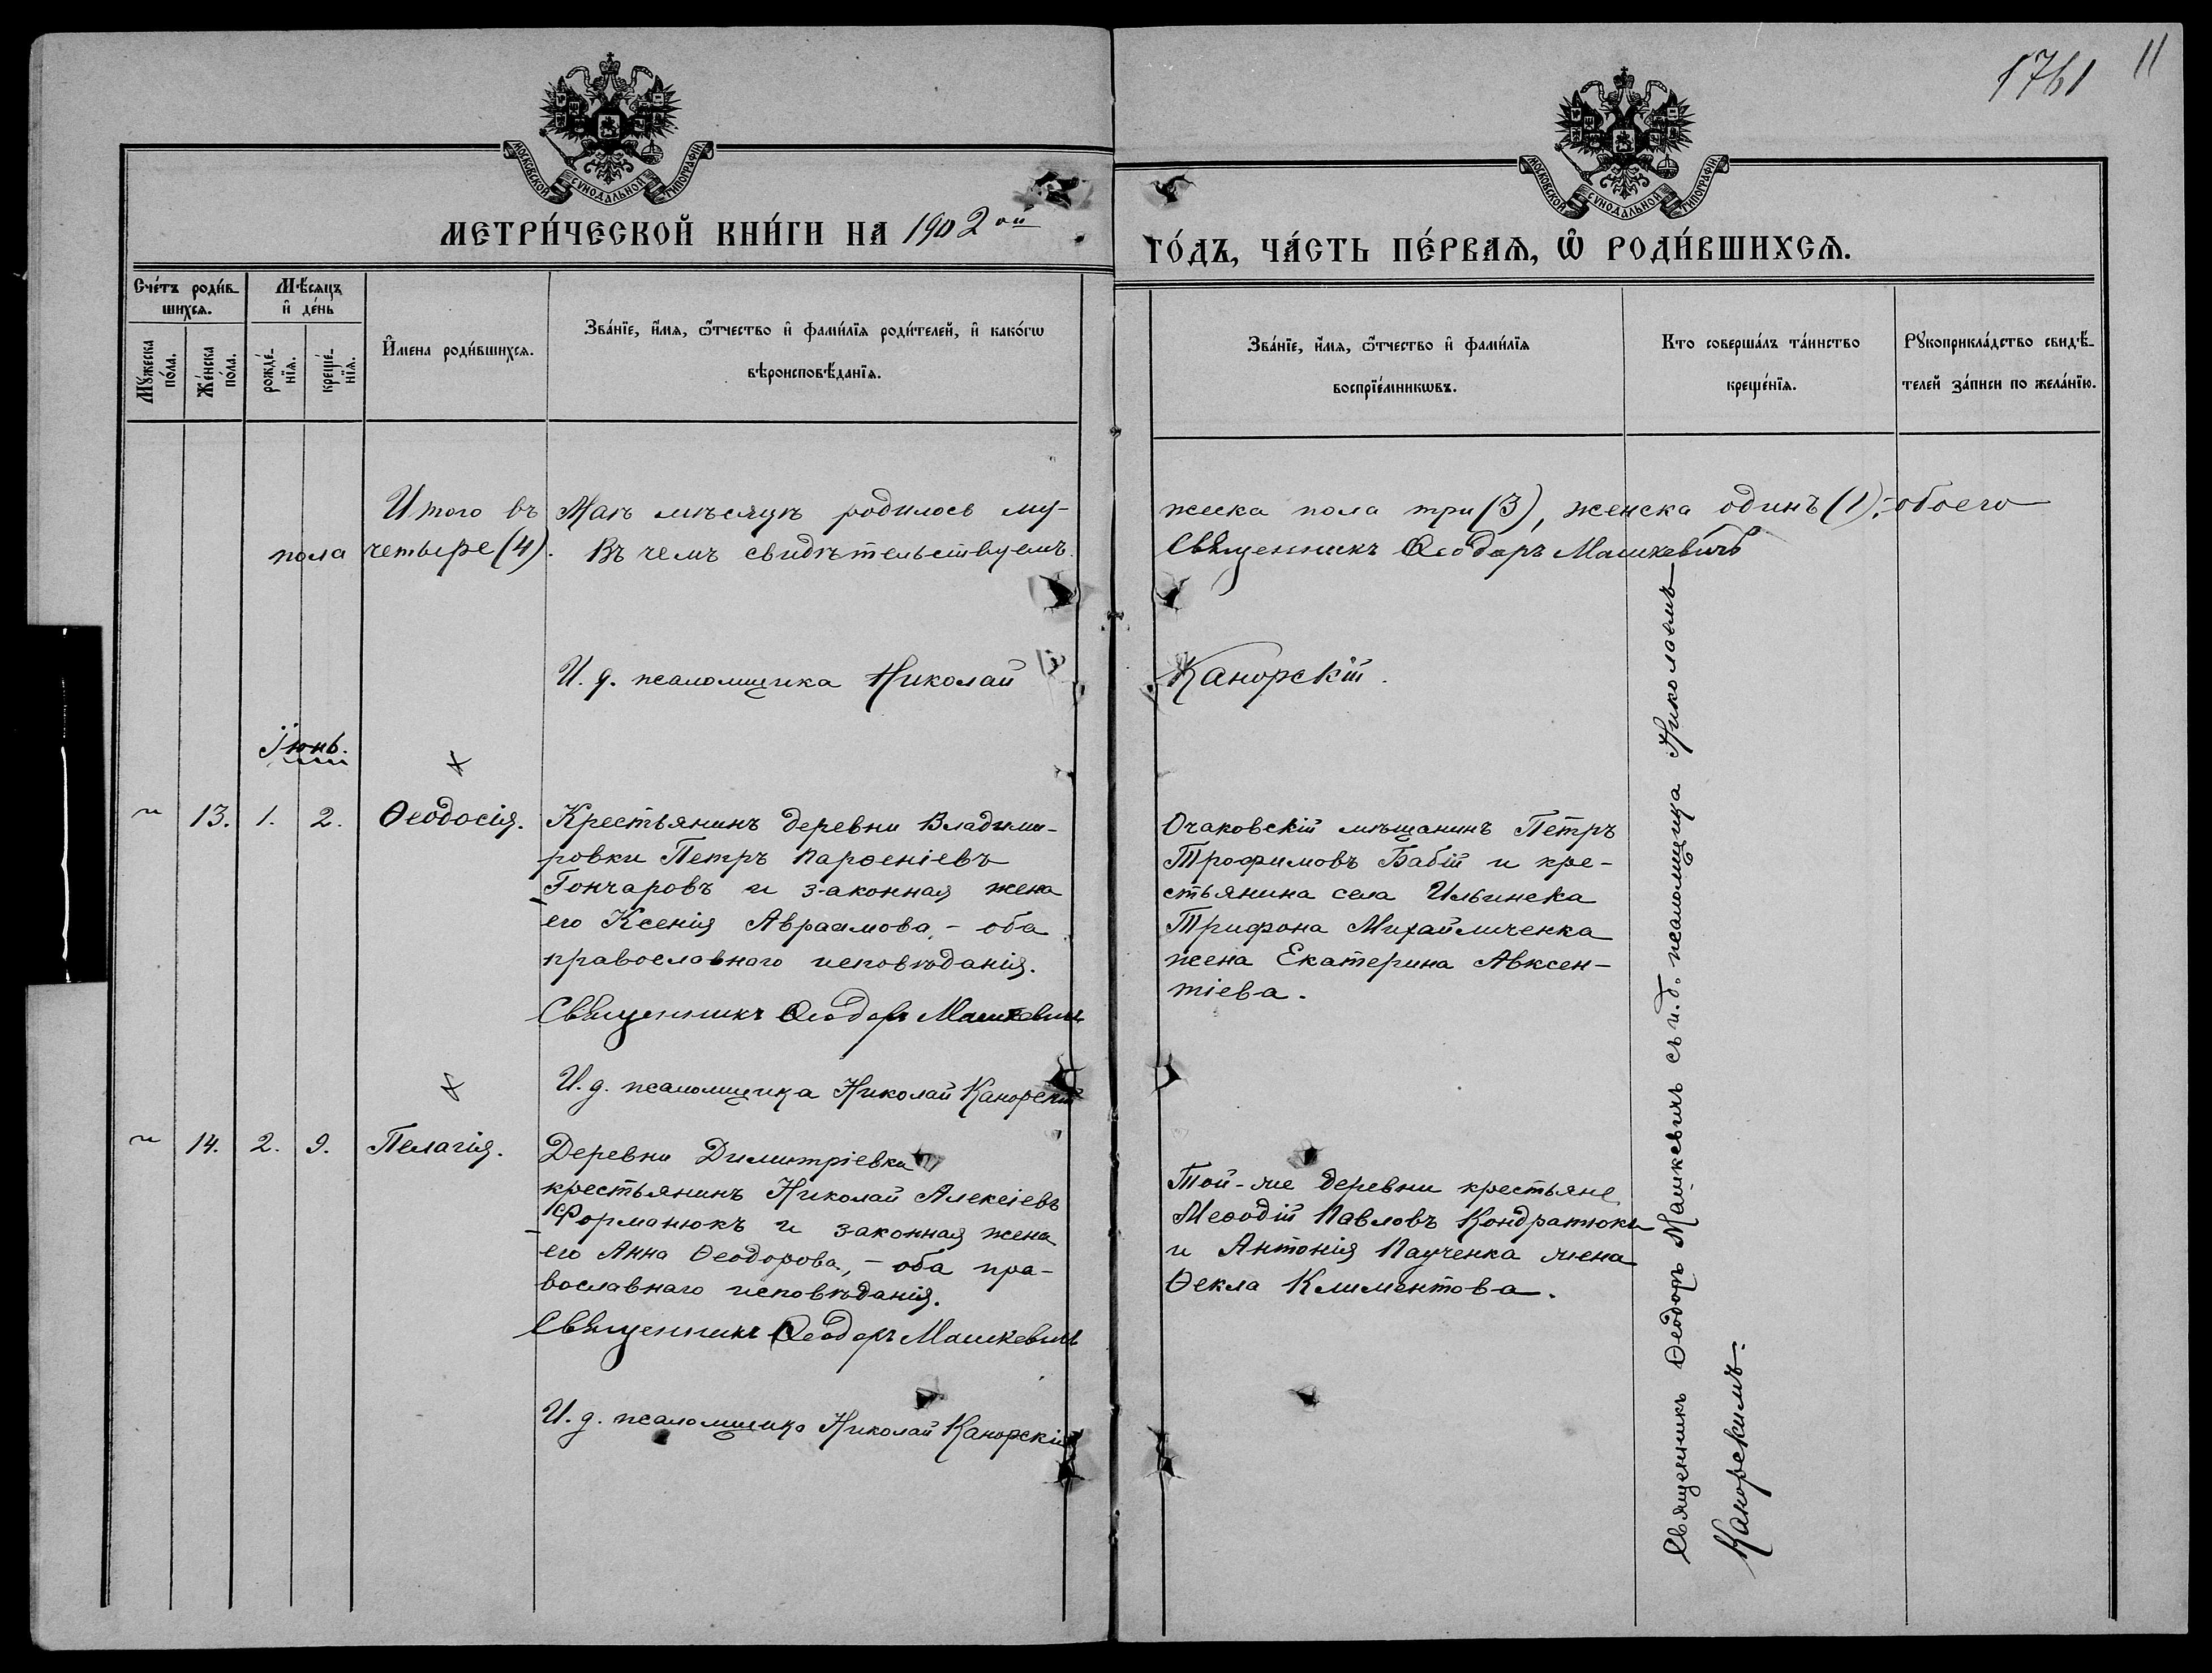 1761
11
МОСКОВСКОЙ СѴНОДАЛЬНОЙ ТИПОГРАФІИ
МОСКОВСКОЙ СѴНОДАЛЬНОЙ ТИПОГРАФІИ
МЕТРИ́ЧЕСКОЙ КНИ́ГИ НА 1902 ой
ГО́ДЪ, ЧА́СТЬ ПЕ́РВАѦ, Ѡ҆ РОДИ́ВШИХСѦ.
Сче́тъ роди́в-
шихсѧ.
Мꙋжеска
по́ла.
Же́нска
по́ла.
Мѣ́сѧцъ
и҆ де́нь
рожде́-
нїѧ.
креще́-
нїѧ.
И҆мена роди́вшихсѧ.
Зва́нїе, и҆́мѧ, ѻ҆́тчество и҆ фами́лїѧ роди́телей, и҆ како́гѡ
вѣроисповѣ́данїѧ.
Зва́нїе, и҆́мѧ, ѻ҆́тчество и҆ фами́лїѧ
воспрїе́мникѡвъ.
Кто соверша́лъ та́инство
креще́нїѧ.
Рꙋкоприкла́дство свидѣ́-
телей за́писи по жела́нїю.
Итого въ Маѣ мѣсяцѣ родилось му-
жеска пола три (3), женска одинъ (1); обоего
пола четыре (4). Въ чемъ свидѣтельствуемъ
Священникъ Ѳеодоръ Машкевичъ
И. д. псаломщика Николай
Канорскій.
Іюнь.
"
13.
1.
2.
Ѳеодосія.
Крестьянинъ деревни Владими-
ровки Петръ Парѳеніевъ
Гончаровъ и законная жена
его Ксенія Авраамова, - оба
православнаго исповѣданія.
Священникъ Ѳеодоръ Машкевичъ
И. д. псаломщика Николай Канорскій
Очаковскій мѣщанинъ Петръ
Трофимовъ Бабій и кре-
стьянина села Ильинска
Трифона Михайличенка
жена Екатерина Авксен-
тіева.
"
14.
2.
9.
Пелагія.
Деревни Димитріевки
крестьянинъ Николай Алексіевъ
Форманюкъ и законная жена
его Анна Ѳеодорова, - оба пра-
вославнаго исповѣданія.
Священникъ Ѳеодоръ Машкевичъ
И. д. псаломщика Николай Канорскій
Той-же деревни крестьяне
Меѳодій Павловъ Кондратюкъ
и Антонія Паученка жена
Ѳекла Климентова.
Священникъ Ѳеодоръ Машкевичъ съ и. д. псаломщика Николаемъ
Канорскимъ.